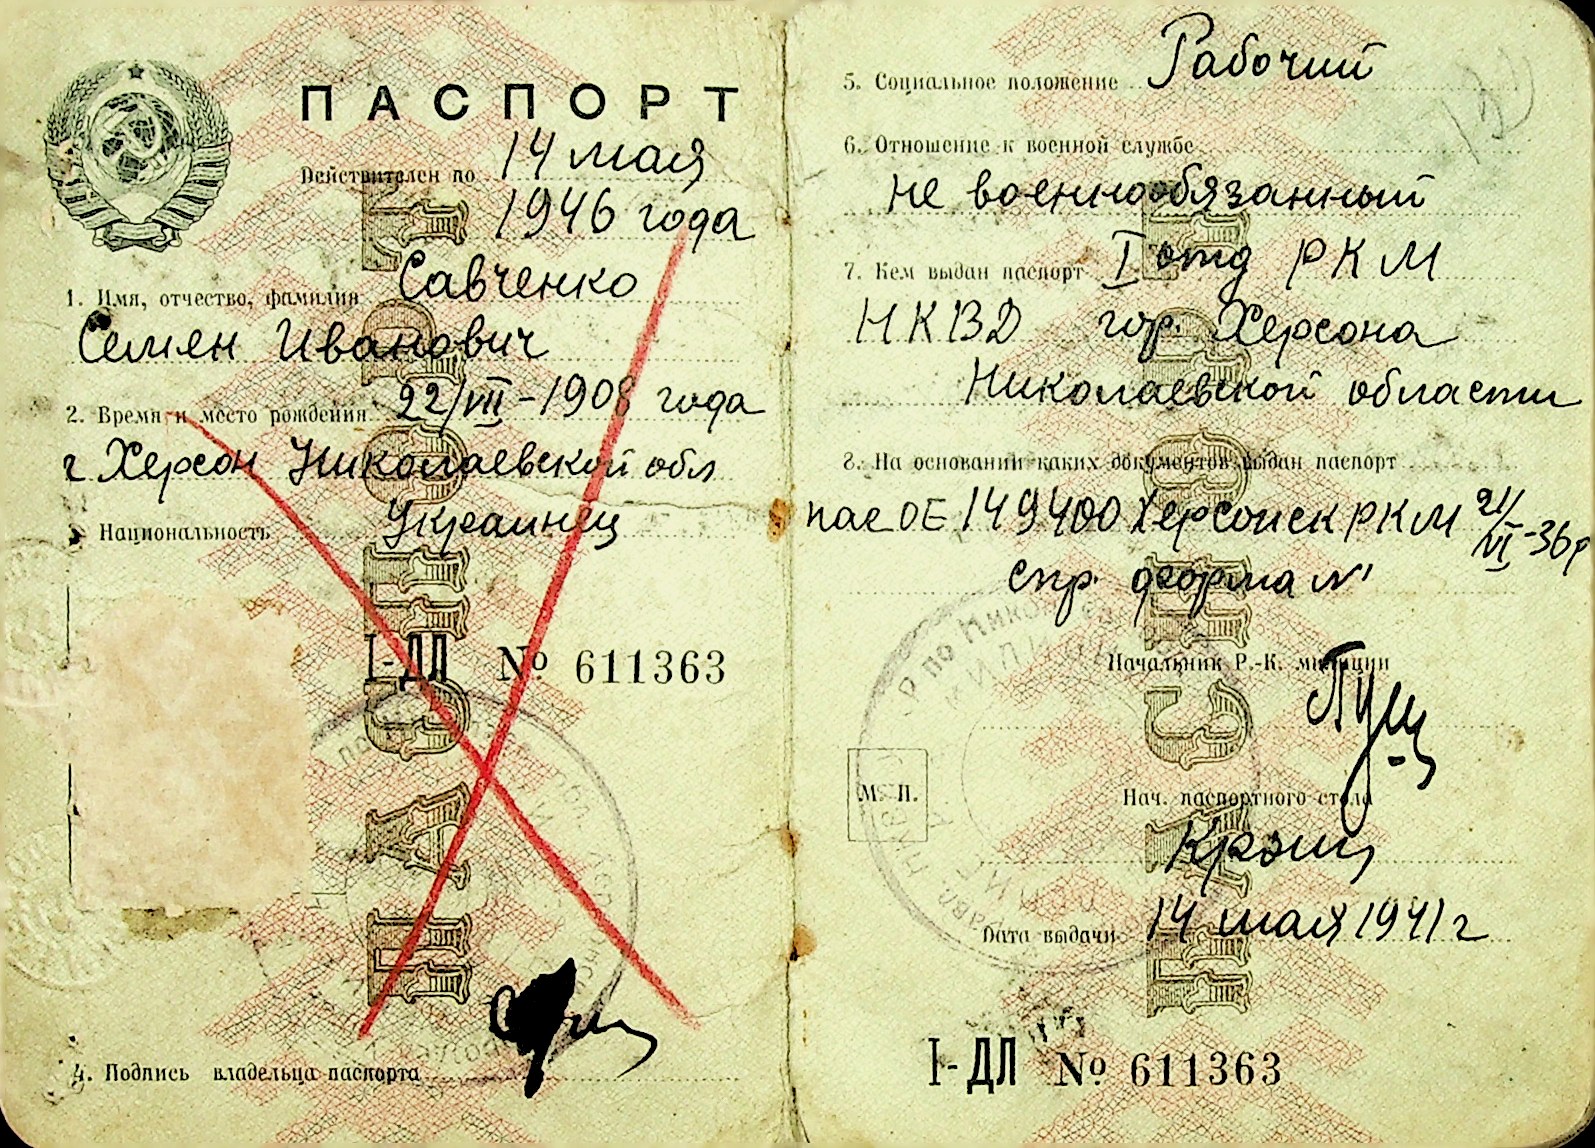 ПАСПОРТ
Действителен по 14 мая
1946 года
1. Имя, отчество, фамилия Савченко
Семен Иванович
2. Время и место рождения 22/VII-1908 года
г Херсон Николаевской обл
Национальность Украинец
I-ДЛ № 611363
4. Подпись владельца паспорта
5. Социальное положение Рабочий
6. Отношение к военной службе
не военнообязанный
7. Кем выдан паспорт I отд РКМ
НКВД гор. Херсона
Николаевской области
8. На основании каких документов выдан паспорт
пас ОЕ 149400 Херсонск РКМ 21/VI-36г
спр. форма №1
Начальник Р.-К. милиции
М. П.
Нач. паспортного стола
Дата выдачи 14 мая 1941 г
I-ДЛ № 611363
ПАСПОРТ
ПАСПОРТ